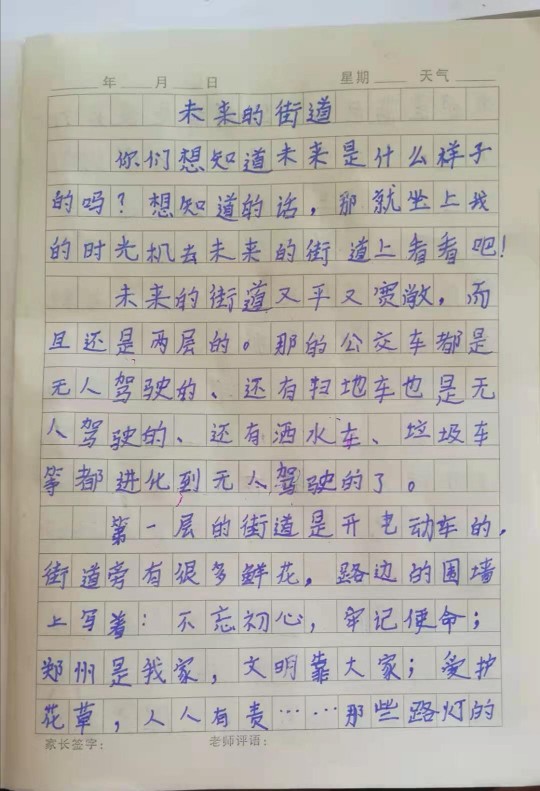 年 月 日 星期 天气
未来的街道
你们想知道未来是什么样子
的吗？想知道的话，那就坐上我
的时光机去未来的街道上看看吧！
未来的街道又平又宽敞，而
且还是两层的。那的公交车都是
无人驾驶的、还有扫地车也是无
人驾驶的、还有洒水车、垃圾车
等都进化到无人驾驶的了。
第一层的街道是开电动车的，
街道旁有很多鲜花，路边的围墙
上写着：不忘初心，牢记使命；
郑州是我家，文明靠大家；爱护
花草，人人有责……那些路灯的
家长签字： 老师评语：